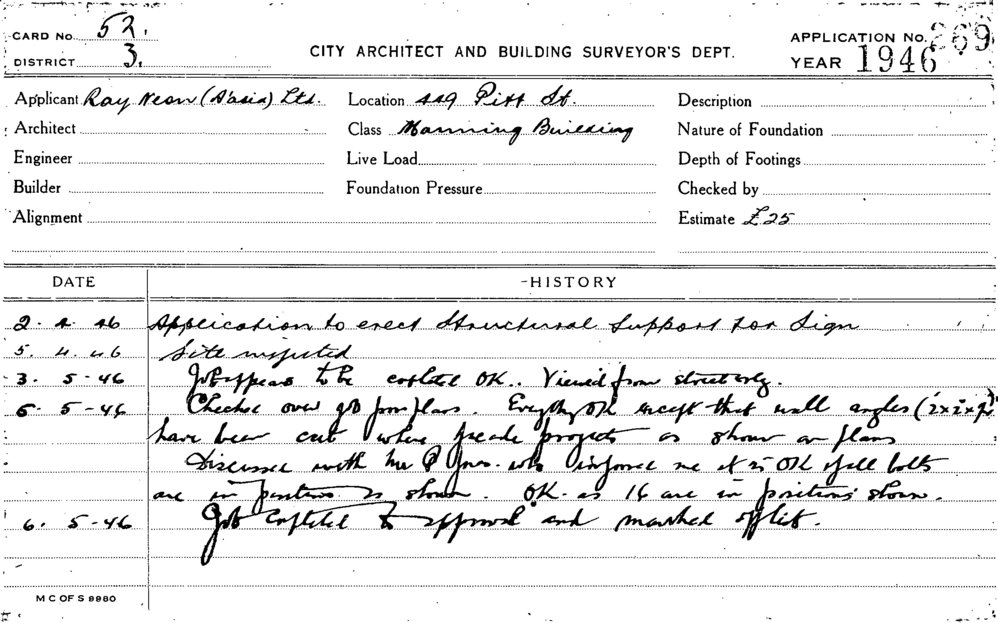 CARD No. 52.
DISTRICT 3.
CITY ARCHITECT AND BUILDING SURVEYOR'S DEPT.
APPLICATION No. 269
YEAR 1946
Applicant Ray Neon (A'asia) Ltd. Location 449 Pitt St. Description
Architect Class Manning Building Nature of Foundation
Engineer Live Load Depth of Footings
Builder Foundation Pressure Checked by
Alignment Estimate £25
DATE HISTORY
2. 4. 46 Application to erect Structural Support for Sign
5. 4. 46 Site inspected
3. 5-46 Job appears to be completed OK. Viewed from street only.
6. 5-46 Checked over job from plans. Everything OK except that wall angles
have been cut where facade projects as shown on plans
Discussed with Mr P Jones who informed me it is OK if all bolts
are in positions as shown. OK as 16 are in positions shown.
6. 5-46 Job completed to approval and marked off list.
M C OF S 9980